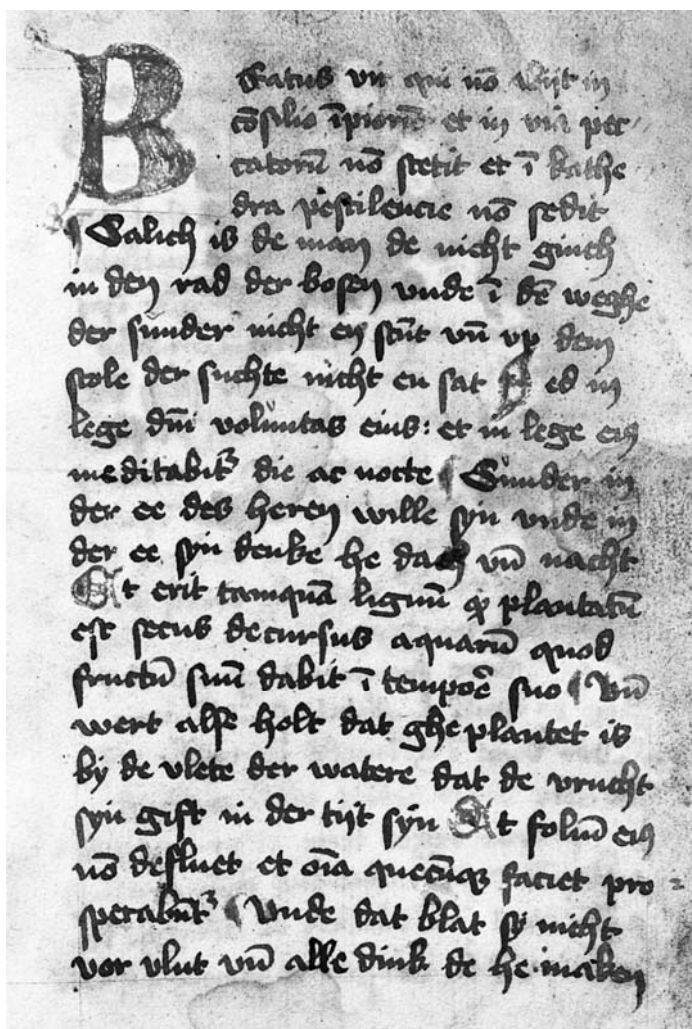 Beatus vir qui nō abijt in
cōsilio īpiorū et in via pec
catorū nō stetit et ī kathe
dra pestilencie nō sedit
Salich is de man de nicht ginch
in den rad der bosen vnde ī dē weghe
der sunder nicht en stūt vn̄ vp dem
stole der suchte nicht en sat Sed in
lege dn̄i voluntas eius: et in lege eiꝰ
meditabit᷑ die ac nocte Sunder in
der ee des heren wille syn vnde in
der ee syn denke he dach vn̄ nacht
Et erit tamquā lignum qd̄ plantatū
est secus decursus aquarū quod
fructū suū dabit ī tempor̄e suo Vn̄
wert alse holt dat ghe plantet is
by de vlete der watere dat de vrucht
syn gift in der tijt syn Et foliū eiꝰ
nō defluet et oīa quecūqꝫ faciet pro
sperabūt᷑ Vnde dat blat sy nicht
vor vlut vn̄ alle dink de he maken